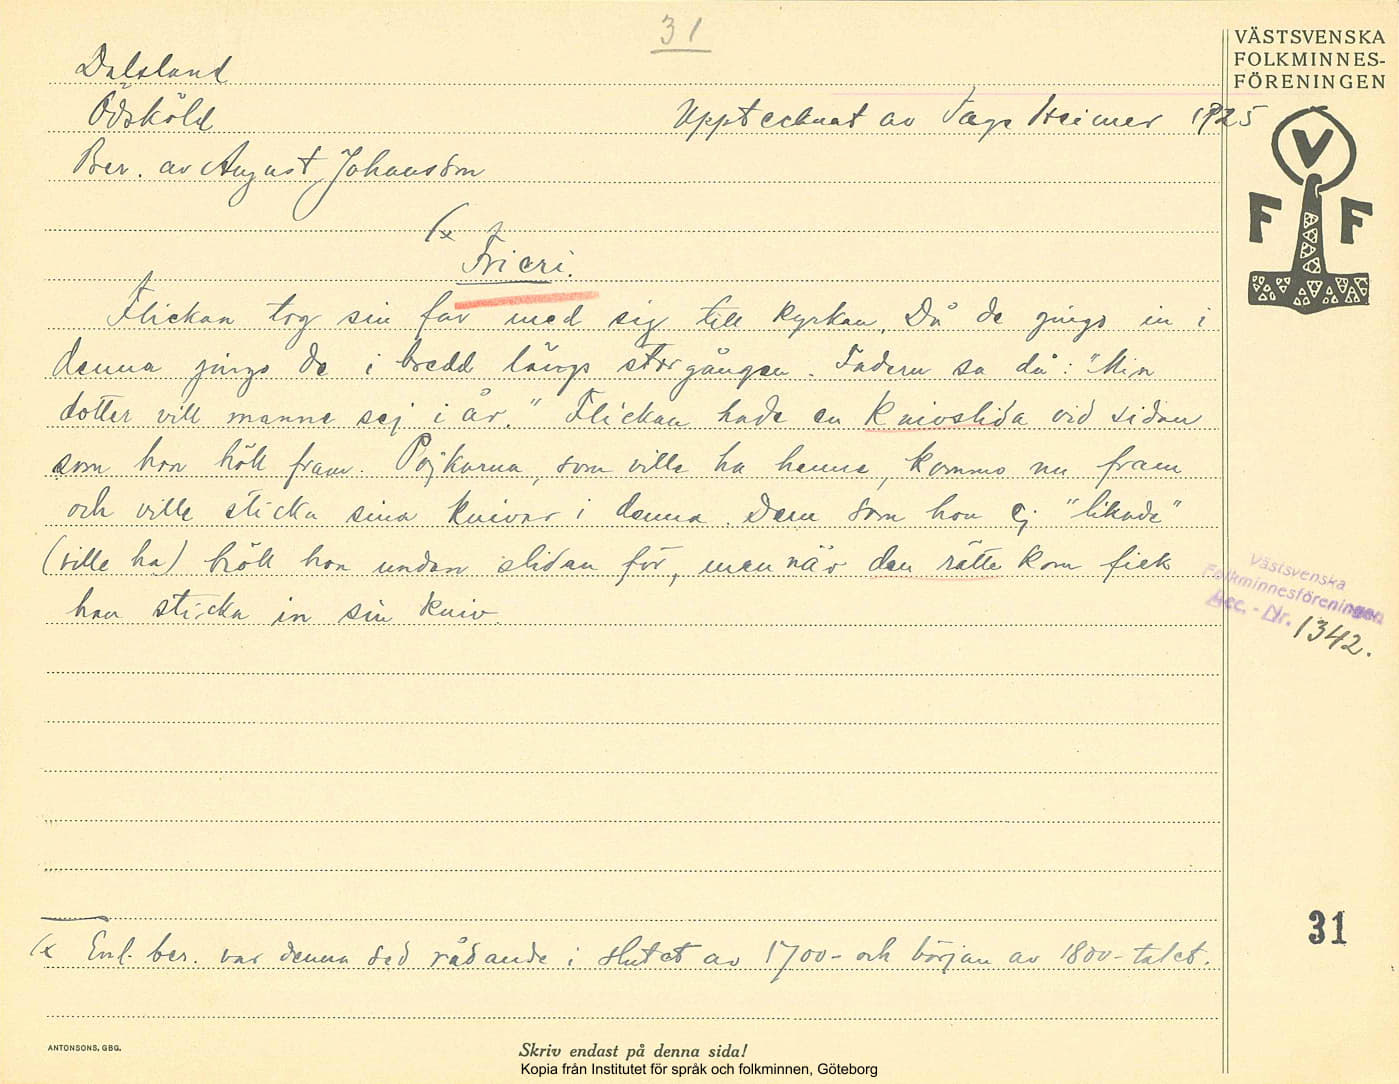 31
VÄSTSVENSKA
FOLKMINNES-
FÖRENINGEN
Dalsland
Ödsköld
Upptecknat av Tage Heimer 1925
Ber. av August Johansson
V
F F
(x
Frieri.
Flickan tog sin far med sig till kyrkan. Då de gingo in i
denna gingo de i bredd längs storgången. Fadern sa då: "Min
dotter vill manne sej i år." Flickan hade en knivslida vid sidan
som hon höll fram. Pojkarna, som ville ha henne, kommo nu fram
och ville sticka sina knivar i denna. Dem som hon ej "likade"
(ville ha) höll hon undan slidan för, men när den rätte kom fick
han sticka in sin kniv.
Västsvenska
Folkminnesföreningen
Acc. - Nr. 1342.
31
(x Enl. ber. var denna sed rådande i slutet av 1700- och början av 1800-talet.
ANTONSONS, GBG.
Skriv endast på denna sida!
Kopia från Institutet för språk och folkminnen, Göteborg